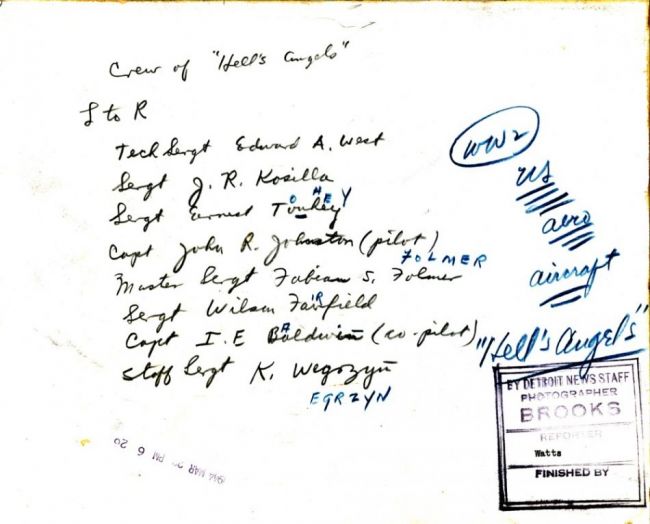 Crew of "Hell's Angels"
L to R
Tech Sergt Edward A. West
Sergt J. R. Kosilla
O NEY
Sergt Earnest Tonhey
Capt John R. Johnston (pilot)
FOLMER
Master Sergt Fabian S. Folmer
Sergt Wilson Fairfield
Capt I. E Baldwin (co-pilot)
Staff Sergt K. Wegozyn
EGRZYN
WW2
US
aero
aircraft
"Hell's Angels"
BY DETROIT NEWS STAFF
PHOTOGRAPHER
BROOKS
REPORTER
Watts
FINISHED BY
1944 MAR PM 6 20